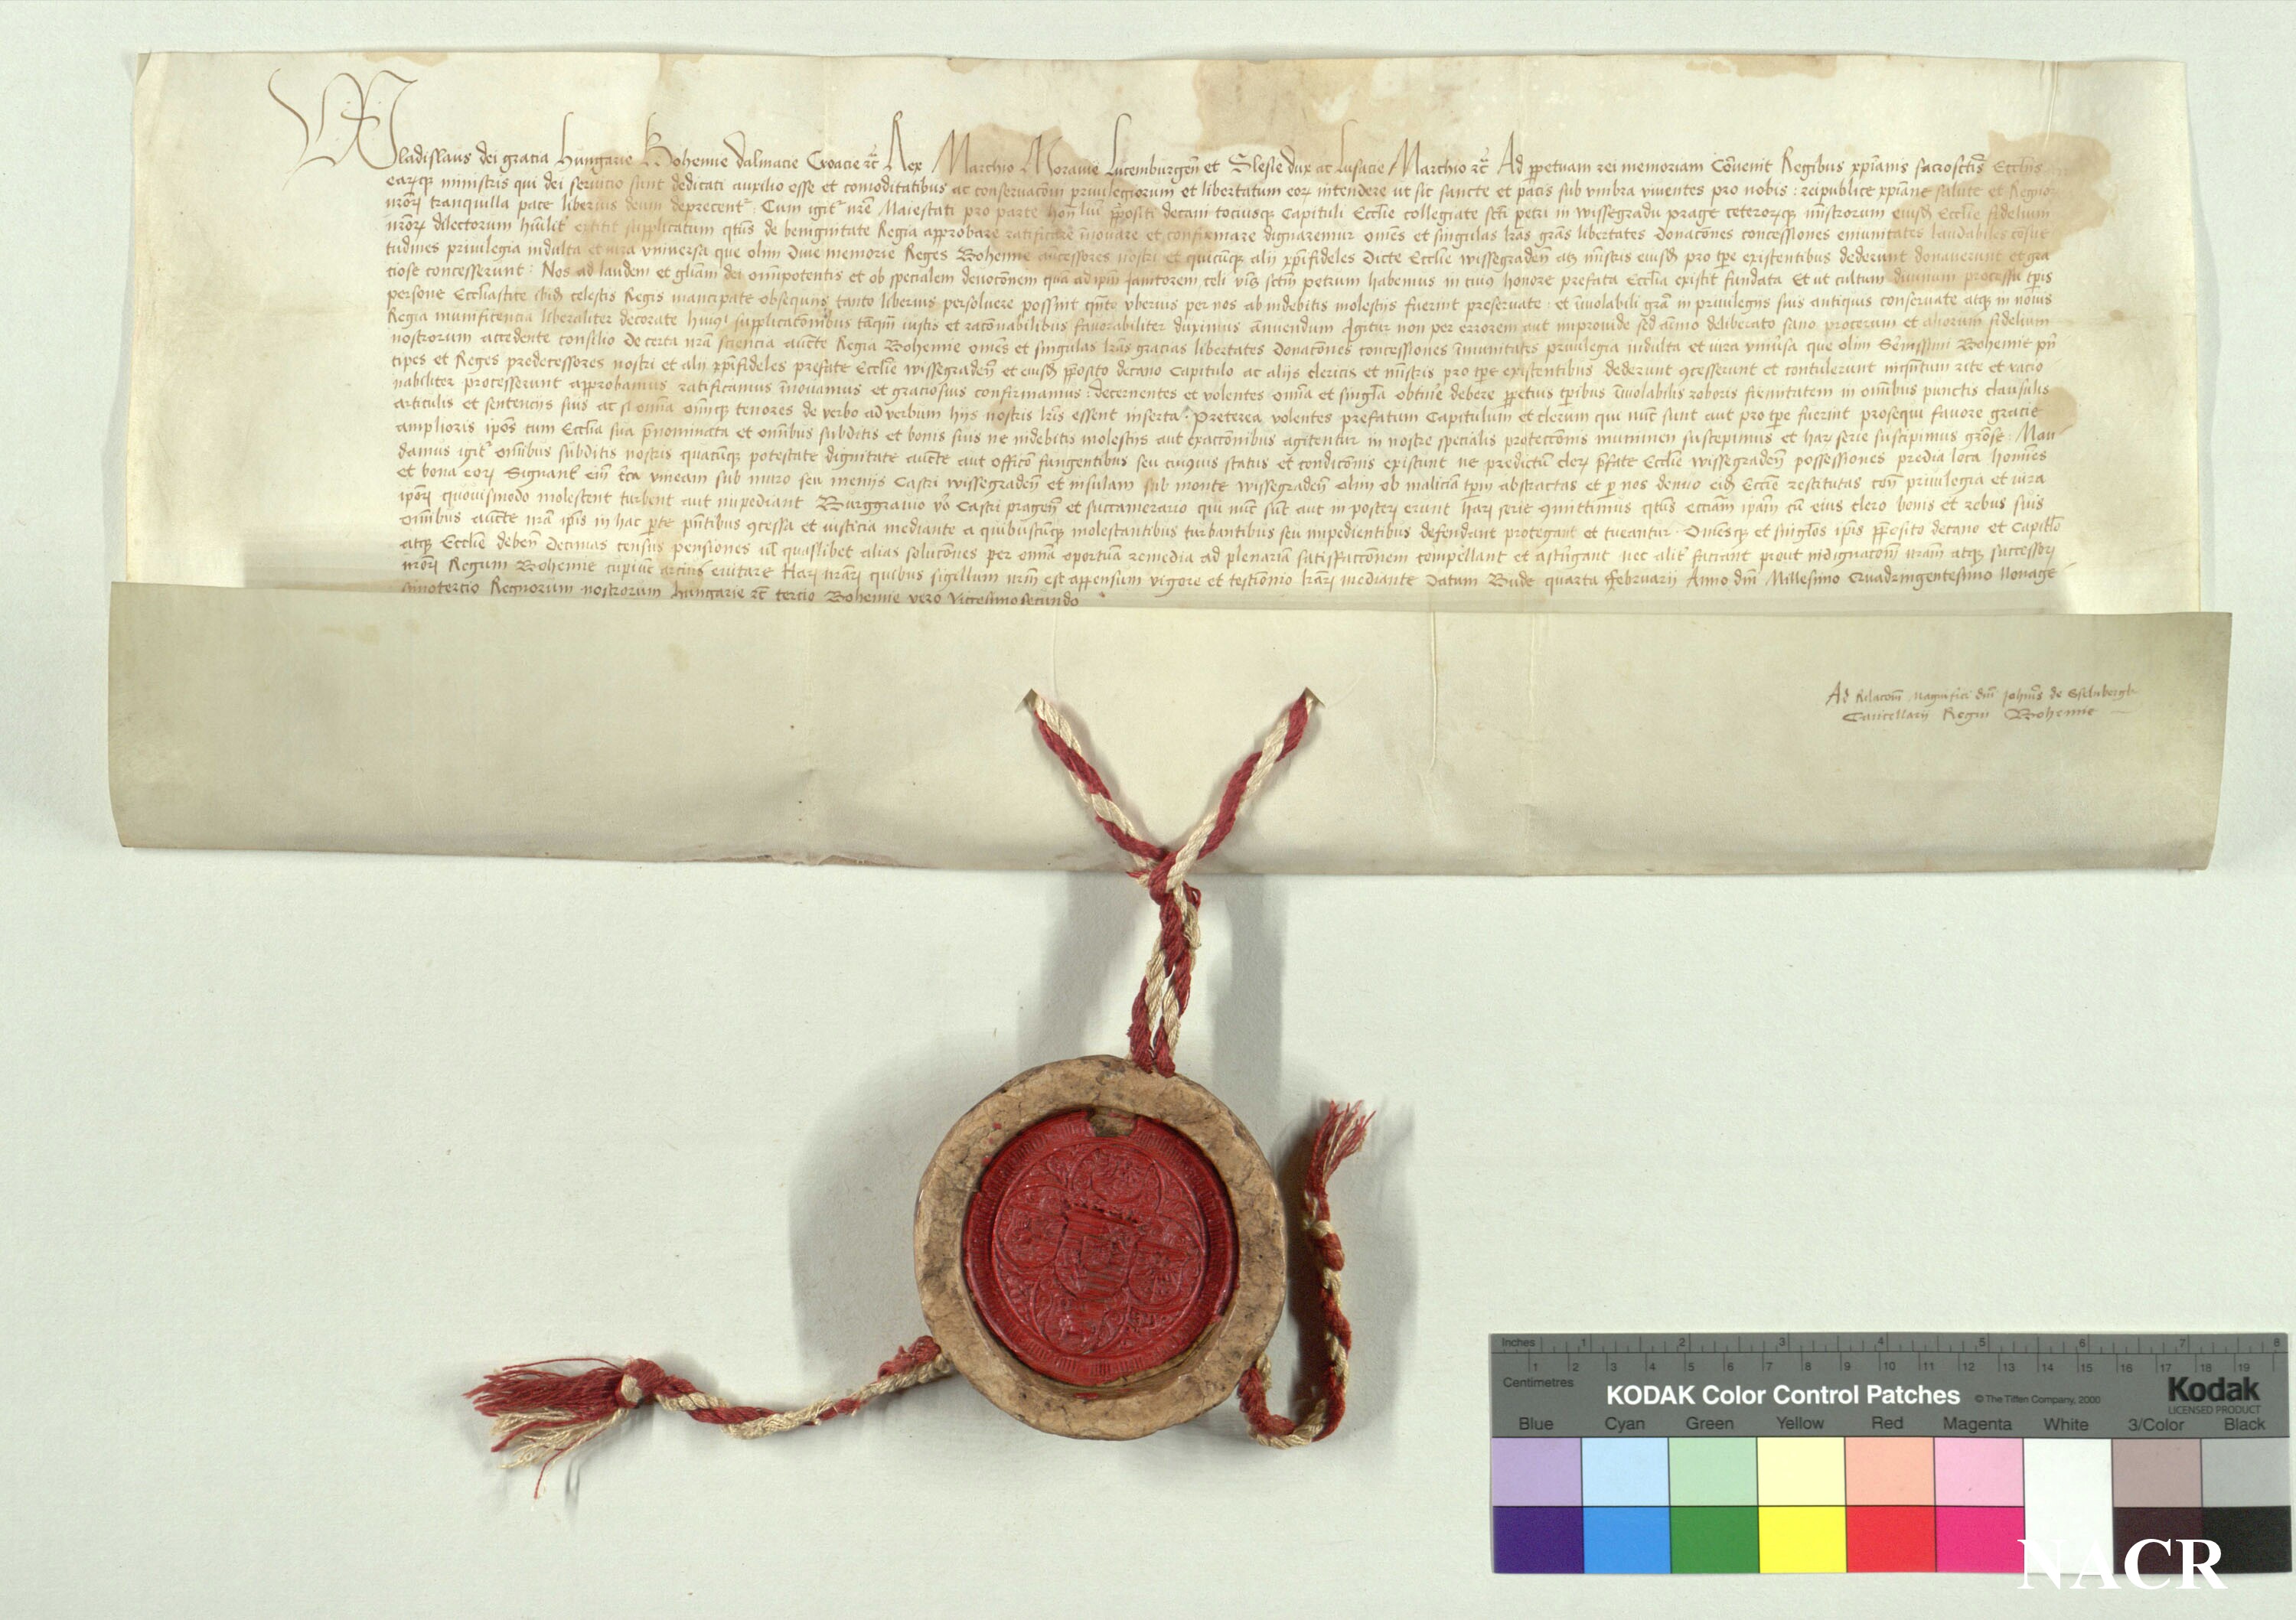 Wladislaus dei gracia Hungarie Bohemie Dalmacie Croacie rc̃ Rex Marchio Moravie Lucemburgeñ et Slesie dux ac Lusacie Marchio rc̃ Ad ppetuam rei memoriam Cõvenit Regibus xp̃ianis sacrosctĩs Eccl̃iis
earꝝqꝫ ministris qui dei servicio sunt dedicati auxilio esse et comoditatibus ac conservacõni privilegiorum et libertatum eoꝝ intendere ut sic sancte et pacis sub vmbra viventes pro nobis : reipublice xp̃iane salute et Regnoꝝ
nr̃oꝝ tranquilla pace liberius deum deprecentʳ : Cum igitʳ nr̃e Maiestati pro parte hon̄ lium p̃positi decani tociusqꝫ Capituli Eccl̃ie collegiate scti petri in wissegradu prage ceteroꝝqꝫ mĩstrorum eiusdꝫ Eccl̃ie fidelium
nr̃oꝝ dilectorum hũilitʳ extitit supplicatum qtũs de benignitate Regia approbare ratificare ĩnovare et confirmare dignaremur om̃es et singulas lr̃as grãs libertates Donacõnes concessiones emunitates laudabiles cõsue
tudines privilegia indulta et iura vniversa que olim Dive memorie Reges Bohemie ãncessores nostri et quicũqꝫ alij xp̃ifideles Dicte Eccl̃ie wissegradeñ atqꝫ mĩstris eiusdꝫ pro tp̃e existentibus dederunt donaverunt et gra
ciose concesserunt : Nos ad laudem et glãm dei om̃ipotentis et ob specialem devocõnem quã ad ip̃m Janitorem celi vicꝫ sctm̃ petrum habemus in cuiꝰ honore prefata Eccl̃ia existit fundata Et ut cultum divinum processu tp̃is
persone Eccl̃iastice ibidꝫ celestis Regis mancipate obsequijs tanto liberius persolvere possint qñto vberius per nos ab indebitis molestijs fuerint preservate : et ĩviolabili grã in privilegijs suis antiquis conservate atqꝫ in novis
Regia munificencia liberaliter decorate huiꝰi supplicacõnibus tãqꝫ iustis et racõnabilibus favorabiliter duximus ãnuendum Igitur non per errorem aut improvide sed aĩmo deliberato sano procerum et aliorum fidelium
nostrorum accedente consilio De certa nr̃a sciencia auctte Regia Bohemie om̃es et singulas lr̃as gracias libertates Donacõnes concessiones ĩmunitates privilegia indulta et iura vniũsa que olim Ser̃issimi Bohemie prĩ
cipes et Reges predecessores nostri et alij xp̃ifideles prefate Eccl̃ie wissegradeñ et eiusdꝫ p̃posito decano Capitulo ac alijs clericis et mĩstris pro tp̃e existentibus dederunt ꝯcesserunt et contulerunt inqñtum rite et racio
nabiliter processerunt approbamus ratificamus ĩnovamus et graciosius confirmamus : decernentes et volentes om̃ia et singl̃a obtiñe debere ppetuis tp̃ibus ĩviolabilis roboris firmitatem in om̃ibus punctis clausulis
articulis et sentencijs suis ac si om̃ia om̃iuqꝫ tenores de verbo ad verbum hijs nostris lr̃is essent inserta : Preterea volentes prefatum Capitulum et clerum qui nũc sunt aut pro tp̃e fuerint prosequi favore gracie
amplioris ip̃os cum Eccl̃ia sua p̃nominata et om̃ibus subditis et bonis suis ne indebitis molestijs aut exaccõnibus agitentur in nostre specialis proteccõnis munimen suscepimus et haꝝ serie suscipimus grõse : Man
damus igitʳ om̃ibus subditis nostris quacũqꝫ potestate dignitate auctte aut officõ fungentibus seu cuiꝰvis status et condicõnis existunt ne predictũ cleꝝ p̃fate Eccl̃ie wissegradeñ possessiones predia loca homĩes
et bona eoꝝ Signantʳ eĩm circa vineam sub muro seu menijs Castri wissegradeñ et insulam sub monte wissegradeñ olim ob maliciã tp̃m abstractas et p nos denuo eidꝫ Eccl̃ie restitutas coñ privilegia et iura
ip̃oꝝ quovismodo molestent turbent aut impediant Burggravio vo Castri prageñ et succamerario qui nũc sũt aut in posteꝝ erunt haꝝ serie ꝯmittimus qtũs eccl̃iam ip̃am cũ eius clero bonis et rebus suis
om̃ibus auctte nr̃a ip̃is in hac pte pñtibus ꝯcessa et iusticia mediante a quibuscũqꝫ molestantibus turbantibus seu impedientibus defendant protegant et tueantur : Om̃esqꝫ et singl̃os ip̃is p̃posito decano et Capitl̃o
atqꝫ Eccl̃ie debeñ Decimas censũs pensiones ul̃ quaslibet alias solucõnes per om̃ia oportũa remedia ad plenariã satisfaccõnem compellant et astringant nec alitʳ faciant prout indignacõm nr̃am atqꝫ successoꝝ
nr̃oꝝ Regum Bohemie cupiũt arcius evitare Haꝝ nr̃aꝝ quibus sigillum nr̃m est appensum vigore et testionio lr̃aꝝ mediante Datum Bude quarta ffebruarij Anno dm̃ Millesimo Quadringentesimo Nonage
simotercio Regnorum nostrorum hungarie rc̃ tercio Bohemie vero vicesimosecundo
Ad Relacõm Magnifici dm̃ Johĩs de Sselnbergk
Cancellarij Regni Bohemie
Inches 1 2 3 4 5 6 7 8
1 2 3 4 5 6 7 8 9 10 11 12 13 14 15 16 17 18 19
Centimetres
KODAK Color Control Patches © The Tiffen Company, 2000 Kodak
LICENSED PRODUCT
Blue Cyan Green Yellow Red Magenta White 3/Color Black
NACR